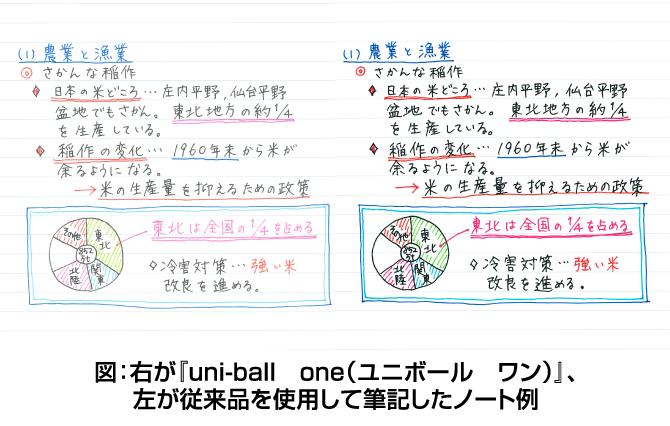 (1) 農業と漁業
◎ さかんな稲作
♦ 日本の米どころ… 庄内平野, 仙台平野
盆地でもさかん。 東北地方の約1/4
を生産している。
♦ 稲作の変化… 1960年末から米が
余るようになる。
→米の生産量を抑えるための政策
東北は全国の1/4を占める
その他
東北
関東
北陸
◇冷害対策…強い米
改良を進める。
(1) 農業と漁業
◎ さかんな稲作
♦ 日本の米どころ… 庄内平野, 仙台平野
盆地でもさかん。 東北地方の約1/4
を生産している。
♦ 稲作の変化… 1960年末から米が
余るようになる。
→米の生産量を抑えるための政策
東北は全国の1/4を占める
その他
東北
関東
北陸
◇冷害対策…強い米
改良を進める。
図：右が『uni-ball one（ユニボール ワン）』、
左が従来品を使用して筆記したノート例